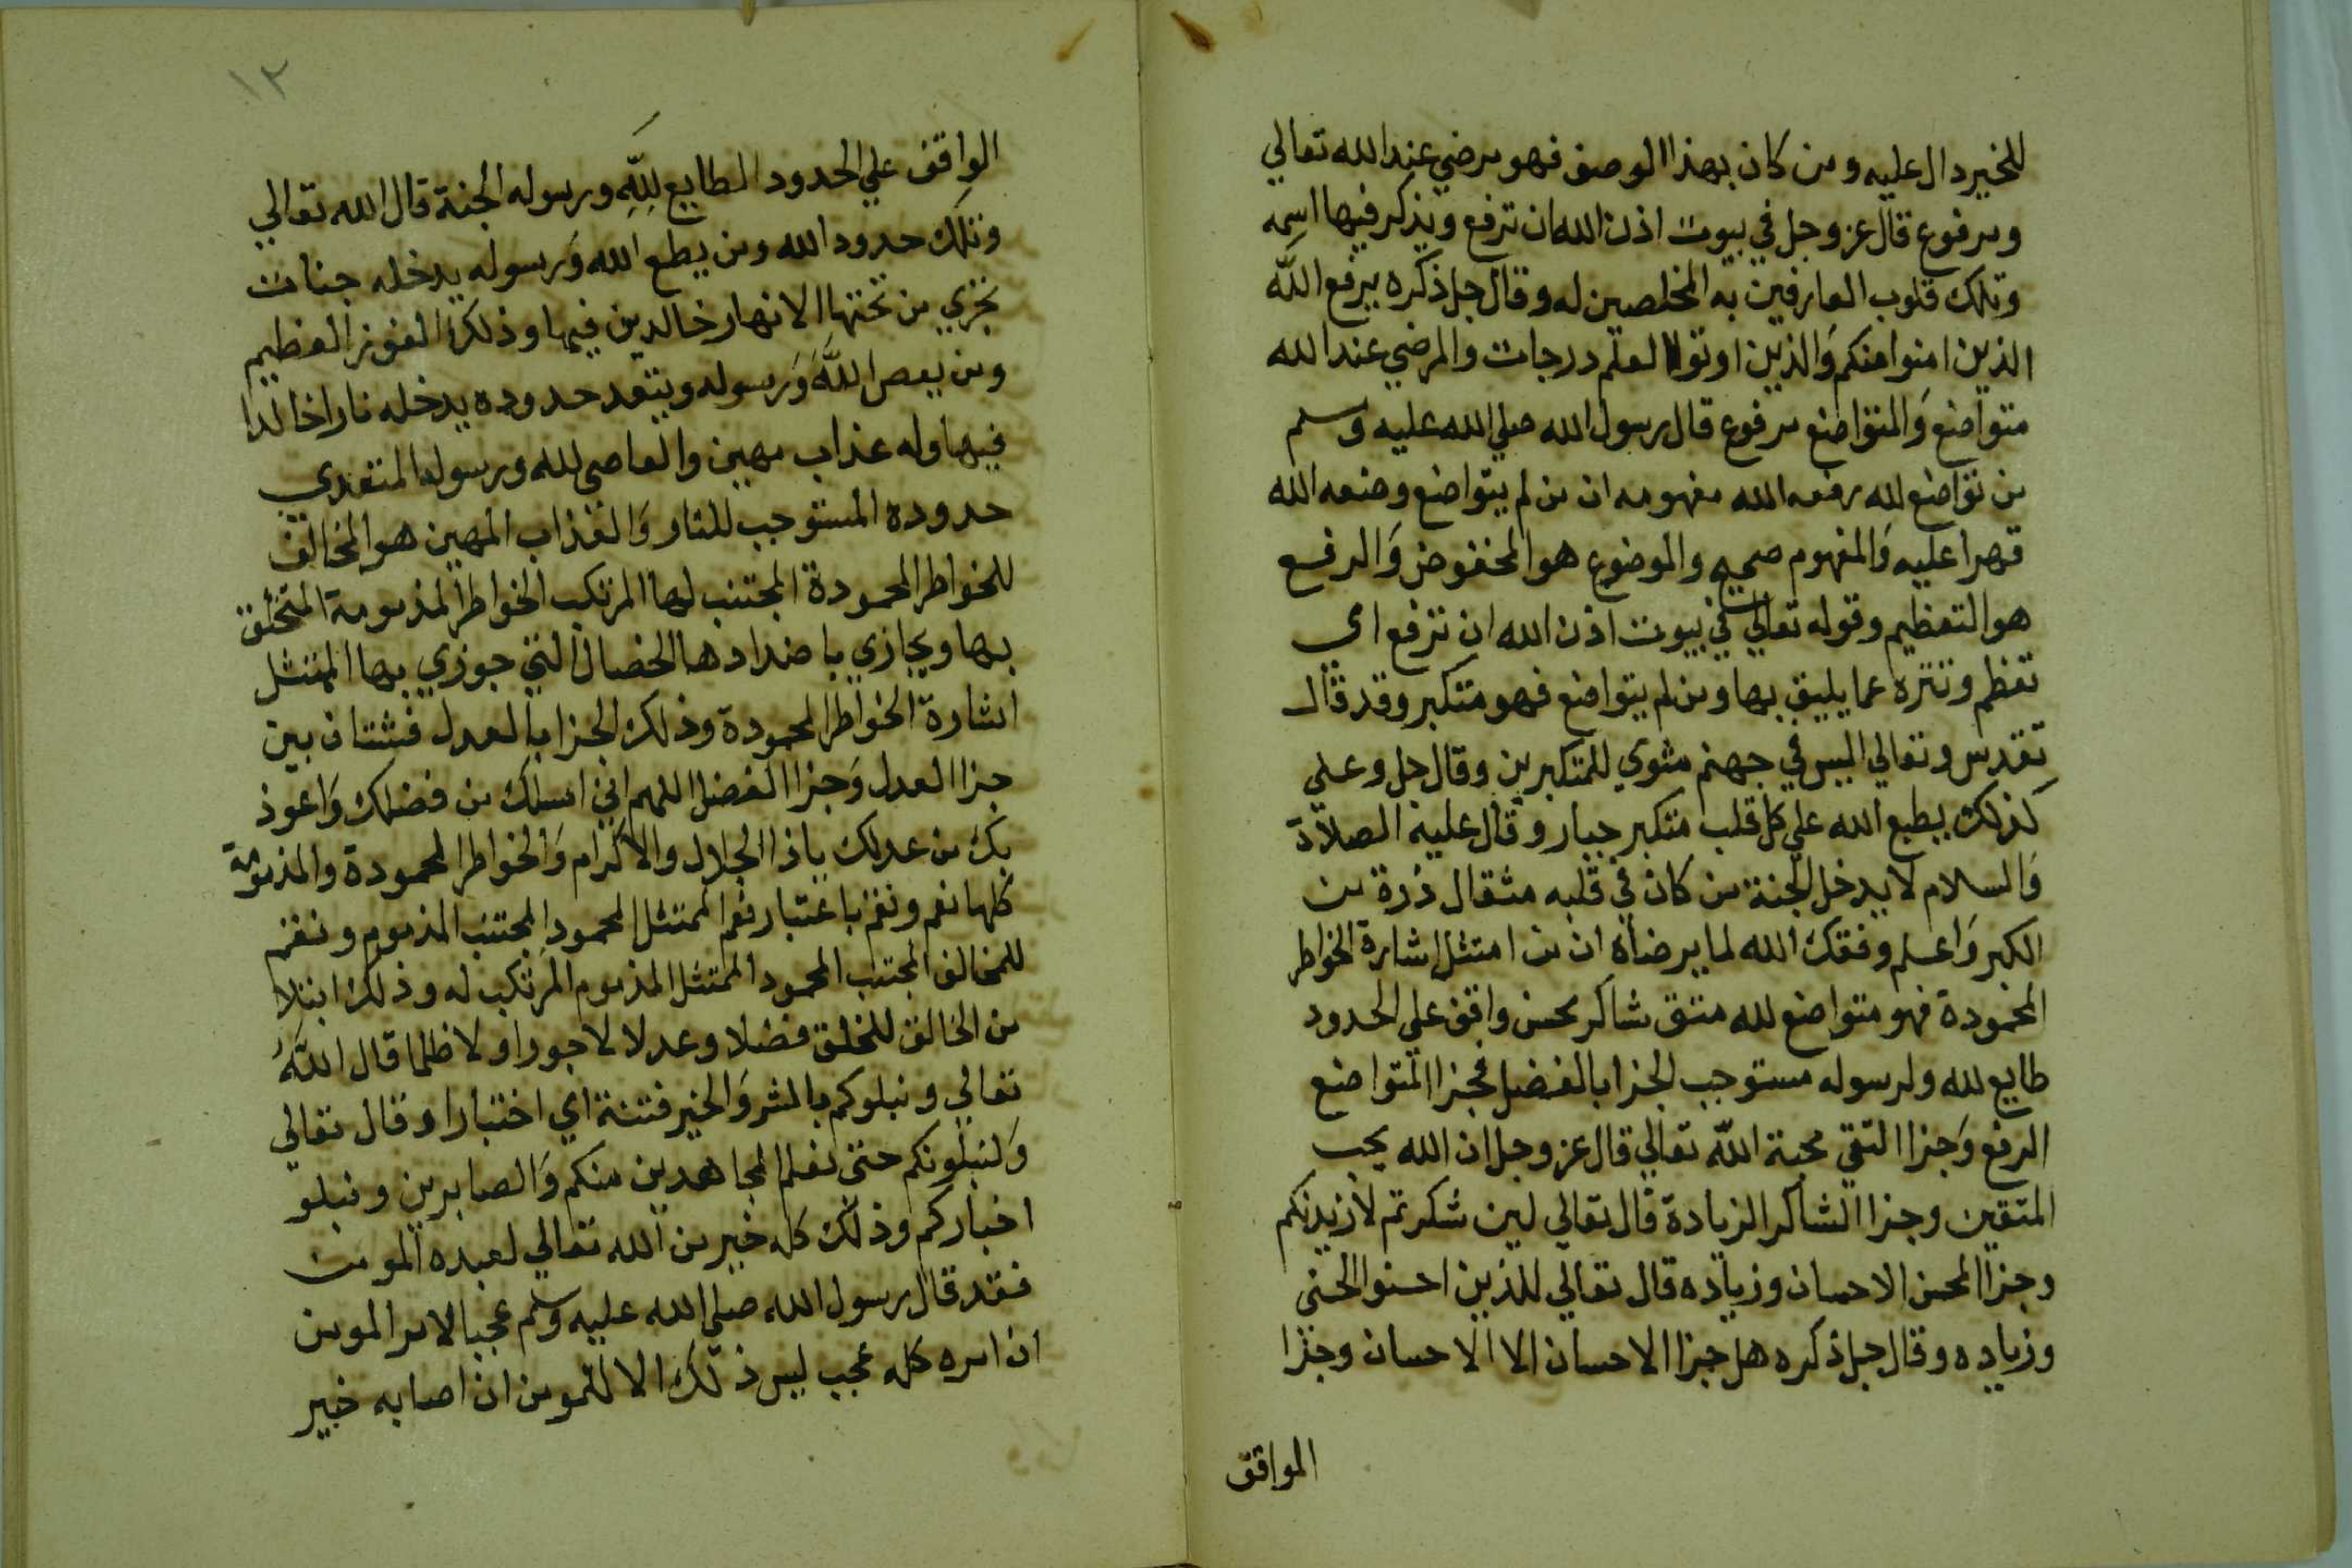 للخير دال عليه ومن كان بهذا الوصف فهو مرضي عند الله تعالي
ومرفوع قال عز وجل في بيوت اذن الله ان ترفع ويذكر فيها اسمه
وتلك قلوب العارفين به المخلصين له وقال جل ذكره يرفع الله
الذين امنوا منكم والذين اوتوا العلم درجات والمرضي عند الله
متواضع والمتواضع مرفوع قال رسول الله صلي الله عليه وسلم
من تواضع لله رفعه الله مفهومه ان من لم يتواضع وضعه الله
قهرا عليه والمفهوم صحيح والموضوع هو المخفوض والرفع
هو التعظيم وقوله تعالي في بيوت اذن الله ان ترفع اى
تعظم وتنزه عما يليق بها ومن لم يتواضع فهو متكبر وقد قال
تقدس وتعالي اليس في جهنم مثوي للمتكبرين وقال جل وعلي
كذلك يطبع الله علي كل قلب متكبر جبار وقال عليه الصلاة
والسلام لا يدخل الجنة من كان في قلبه مثقال ذرة من
الكبر واعلم وفقك الله لما يرضاه ان من امتثل اشارة الخواطر
المحمودة فهو متواضع لله متق شاكر محسن واقف علي الحدود
طايع لله ولرسوله مستوجب الجزا بالفضل فجزا المتواضع
الرفع وجزا التقي محبة الله تعالي قال عز وجل ان الله يحب
المتقين وجزا الشاكر الزيادة قال تعالي لين شكرتم لازيدنكم
وجزا المحسن الاحسان وزياده قال تعالي للذين احسنوا الحسني
وزياده وقال جل ذكره هل جزا الاحسان الا الاحسان وجزا
الواقف
١٢
الواقف علي الحدود الطايع لله ورسوله الجنة قال الله تعالي
وتلك حدود الله ومن يطع الله ورسوله يدخله جنات
تجري من تحتها الانهار خالدين فيها وذلك الفوز العظيم
ومن يعص الله ورسوله ويتعد حدوده يدخله نارا خالدا
فيها وله عذاب مهين والعاصي لله ورسوله المتعدي
حدوده المستوجب للنار والعذاب المهين هو المخالف
للخواطر المحمودة المجتنب لها المرتكب الخواطر المذمومة المتخلق
بها ويجازي باضدادها الخصال التي جوزي بها الممتثل
اشارة الخواطر المحمودة وذلك الجزا بالعدل فشتان بين
جزا العدل وجزا الفضل اللهم اني اسلك من فضلك واعوذ
بك من عدلك ياذا الجلال والاكرام والخواطر المحمودة والمذمومة
كلها نعم ونقم باعتبار نعم الممتثل المحمود المجتنب المذموم ونقم
للمخالف المجتنب المحمود الممتثل المذموم المرتكب له وذلك ابتلا
من الخالق للخلق فضلا وعدلا لا جورا ولا ظلما قال الله
تعالي ونبلوكم بالشر والخير فتنة اي اختبارا وقال تعالي
ولنبلونكم حتي نعلم المجاهدين منكم والصابرين ونبلو
اخباركم وذلك كله خير من الله تعالي لعبده المومن
فقد قال رسول الله صلي الله عليه وسلم عجبا لامر المومن
ان امره كله عجب ليس ذلك الا للمومن ان اصابه خير